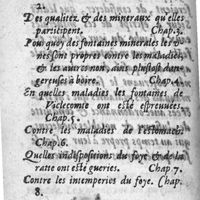 2.
Des qualitez & des mineraux qu'elles
participent. Chap.3.
Pourquoy des fontaines minerales les v-
nes sont propres contre les maladies,
& les autres non, ains plustost dan-
gereuses à boire. Chap.4.
En quelles maladies les fontaines de
ont esté esprouuées.
Chap.5.
Contre les maladies de l'estomach.
Chap.6.
Quelles indispositions du foye & de la
ratte ont esté gueries. Chap 7.
Contre les intemperies du foye. Chap.
8.